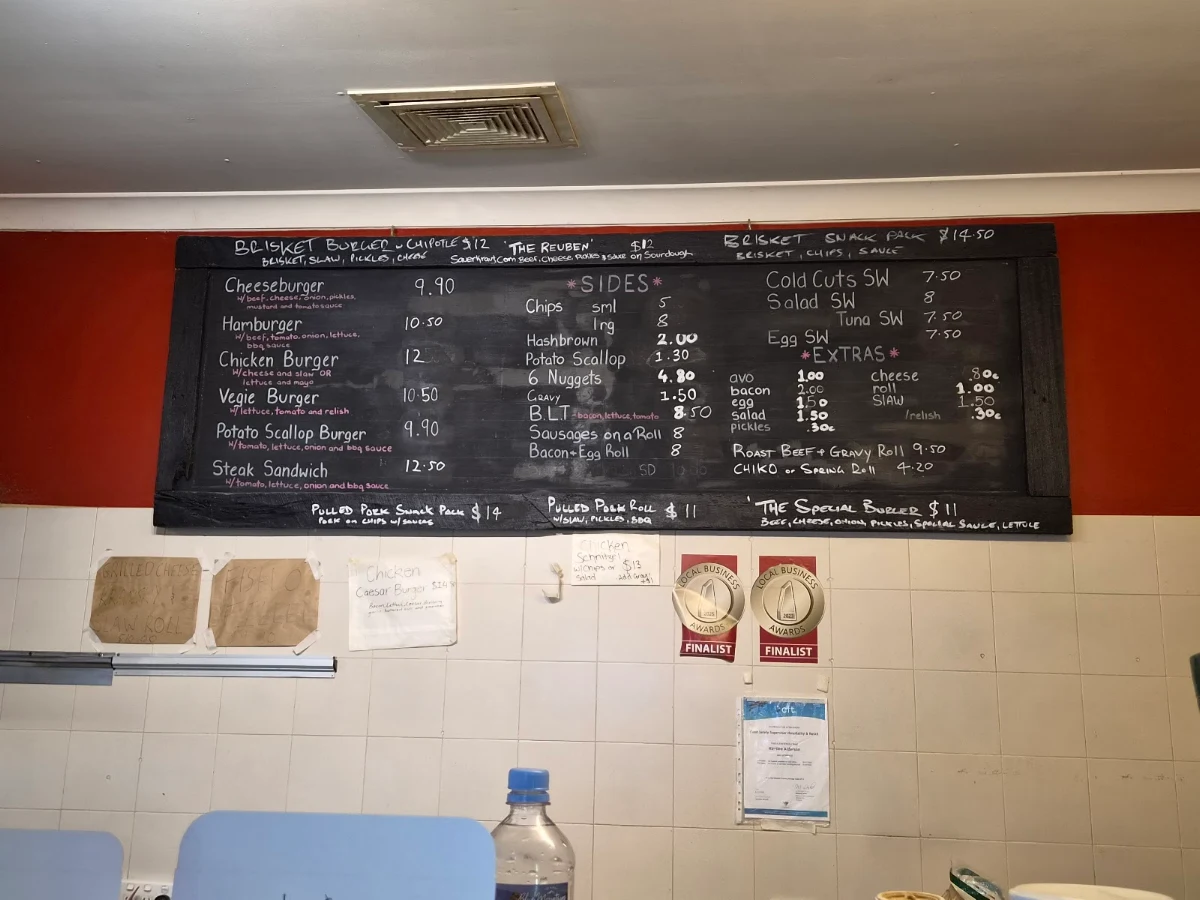 BRISKET BURGER w CHIPOTLE $12
BRISKET, SLAW, PICKLES, CHEESE
'THE REUBEN' $12
Sauerkraut, Corn Beef, Cheese, Pickles & sauce on Sourdough
BRISKET SNACK PACK $14.50
BRISKET, CHIPS, SAUCE
Cheeseburger 9.90
w/beef, cheese, onion, pickles,
mustard and tomato sauce
Hamburger 10.50
w/beef, tomato, onion, lettuce,
bbq sauce
Chicken Burger 12
w/cheese and slaw OR
lettuce and mayo
Vegie Burger 10.50
w/lettuce, tomato and relish
Potato Scallop Burger 9.90
w/tomato, lettuce, onion and bbq sauce
Steak Sandwich 12.50
w/tomato, lettuce, onion and bbq sauce
*SIDES*
Chips sml 5
lrg 8
Hashbrown 2.00
Potato Scallop 1.30
6 Nuggets 4.80
GRAVY 1.50
B.L.T - bacon, lettuce, tomato 8.50
Sausages on a Roll 8
Bacon+Egg Roll 8
SD
Cold Cuts SW 7.50
Salad SW 8
Tuna SW 7.50
Egg SW 7.50
*EXTRAS*
avo 1.00
bacon 2.00
egg 1.50
salad 1.50
pickles .30c
cheese .80c
roll 1.00
SLAW 1.50
/relish .30c
ROAST BEEF + GRAVY Roll 9.50
CHIKO or SPRING Roll 4.20
PULLED PORK SNACK PACK $14
PORK on CHIPS w/ SAUCES
PULLED PORK ROLL $11
w/SLAW, PICKLES, BBQ
'THE SPECIAL BURGER $11
BEEF, CHEESE, ONION, PICKLES, SPECIAL SAUCE, LETTUCE
GRILLED CHEESE
SLAW ROLL
Chicken
Caesar Burger
Chicken
Schnitzel
w/Chips or $13
Salad add Gravy
LOCAL BUSINESS
AWARDS
FINALIST
LOCAL BUSINESS
AWARDS
FINALIST